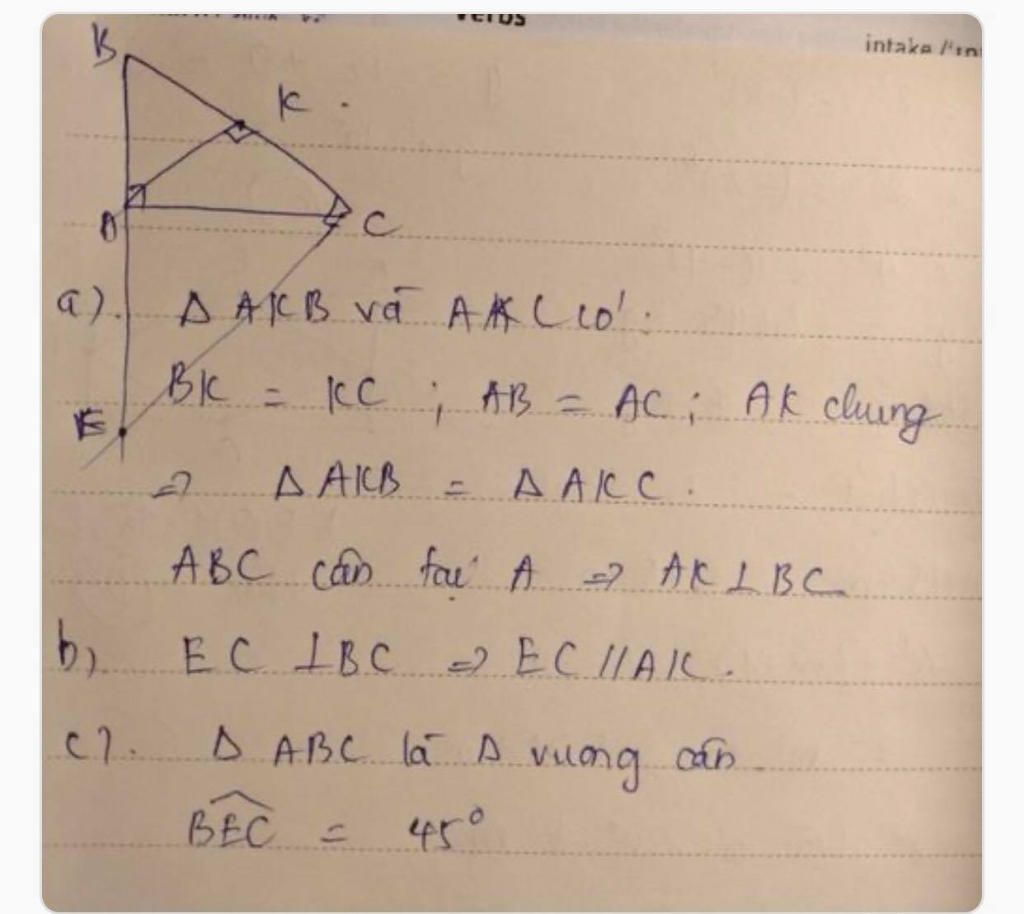 verbs
intake
B
K .
A
C
a). Δ AKB và AKC có:
BK = KC ; AB = AC ; AK chung
E
=> Δ AKB = Δ AKC .
ABC cân tại A => AK ⊥ BC
b). EC ⊥ BC => EC // AK .
c). Δ ABC là Δ vuong cân
BEC = 45°